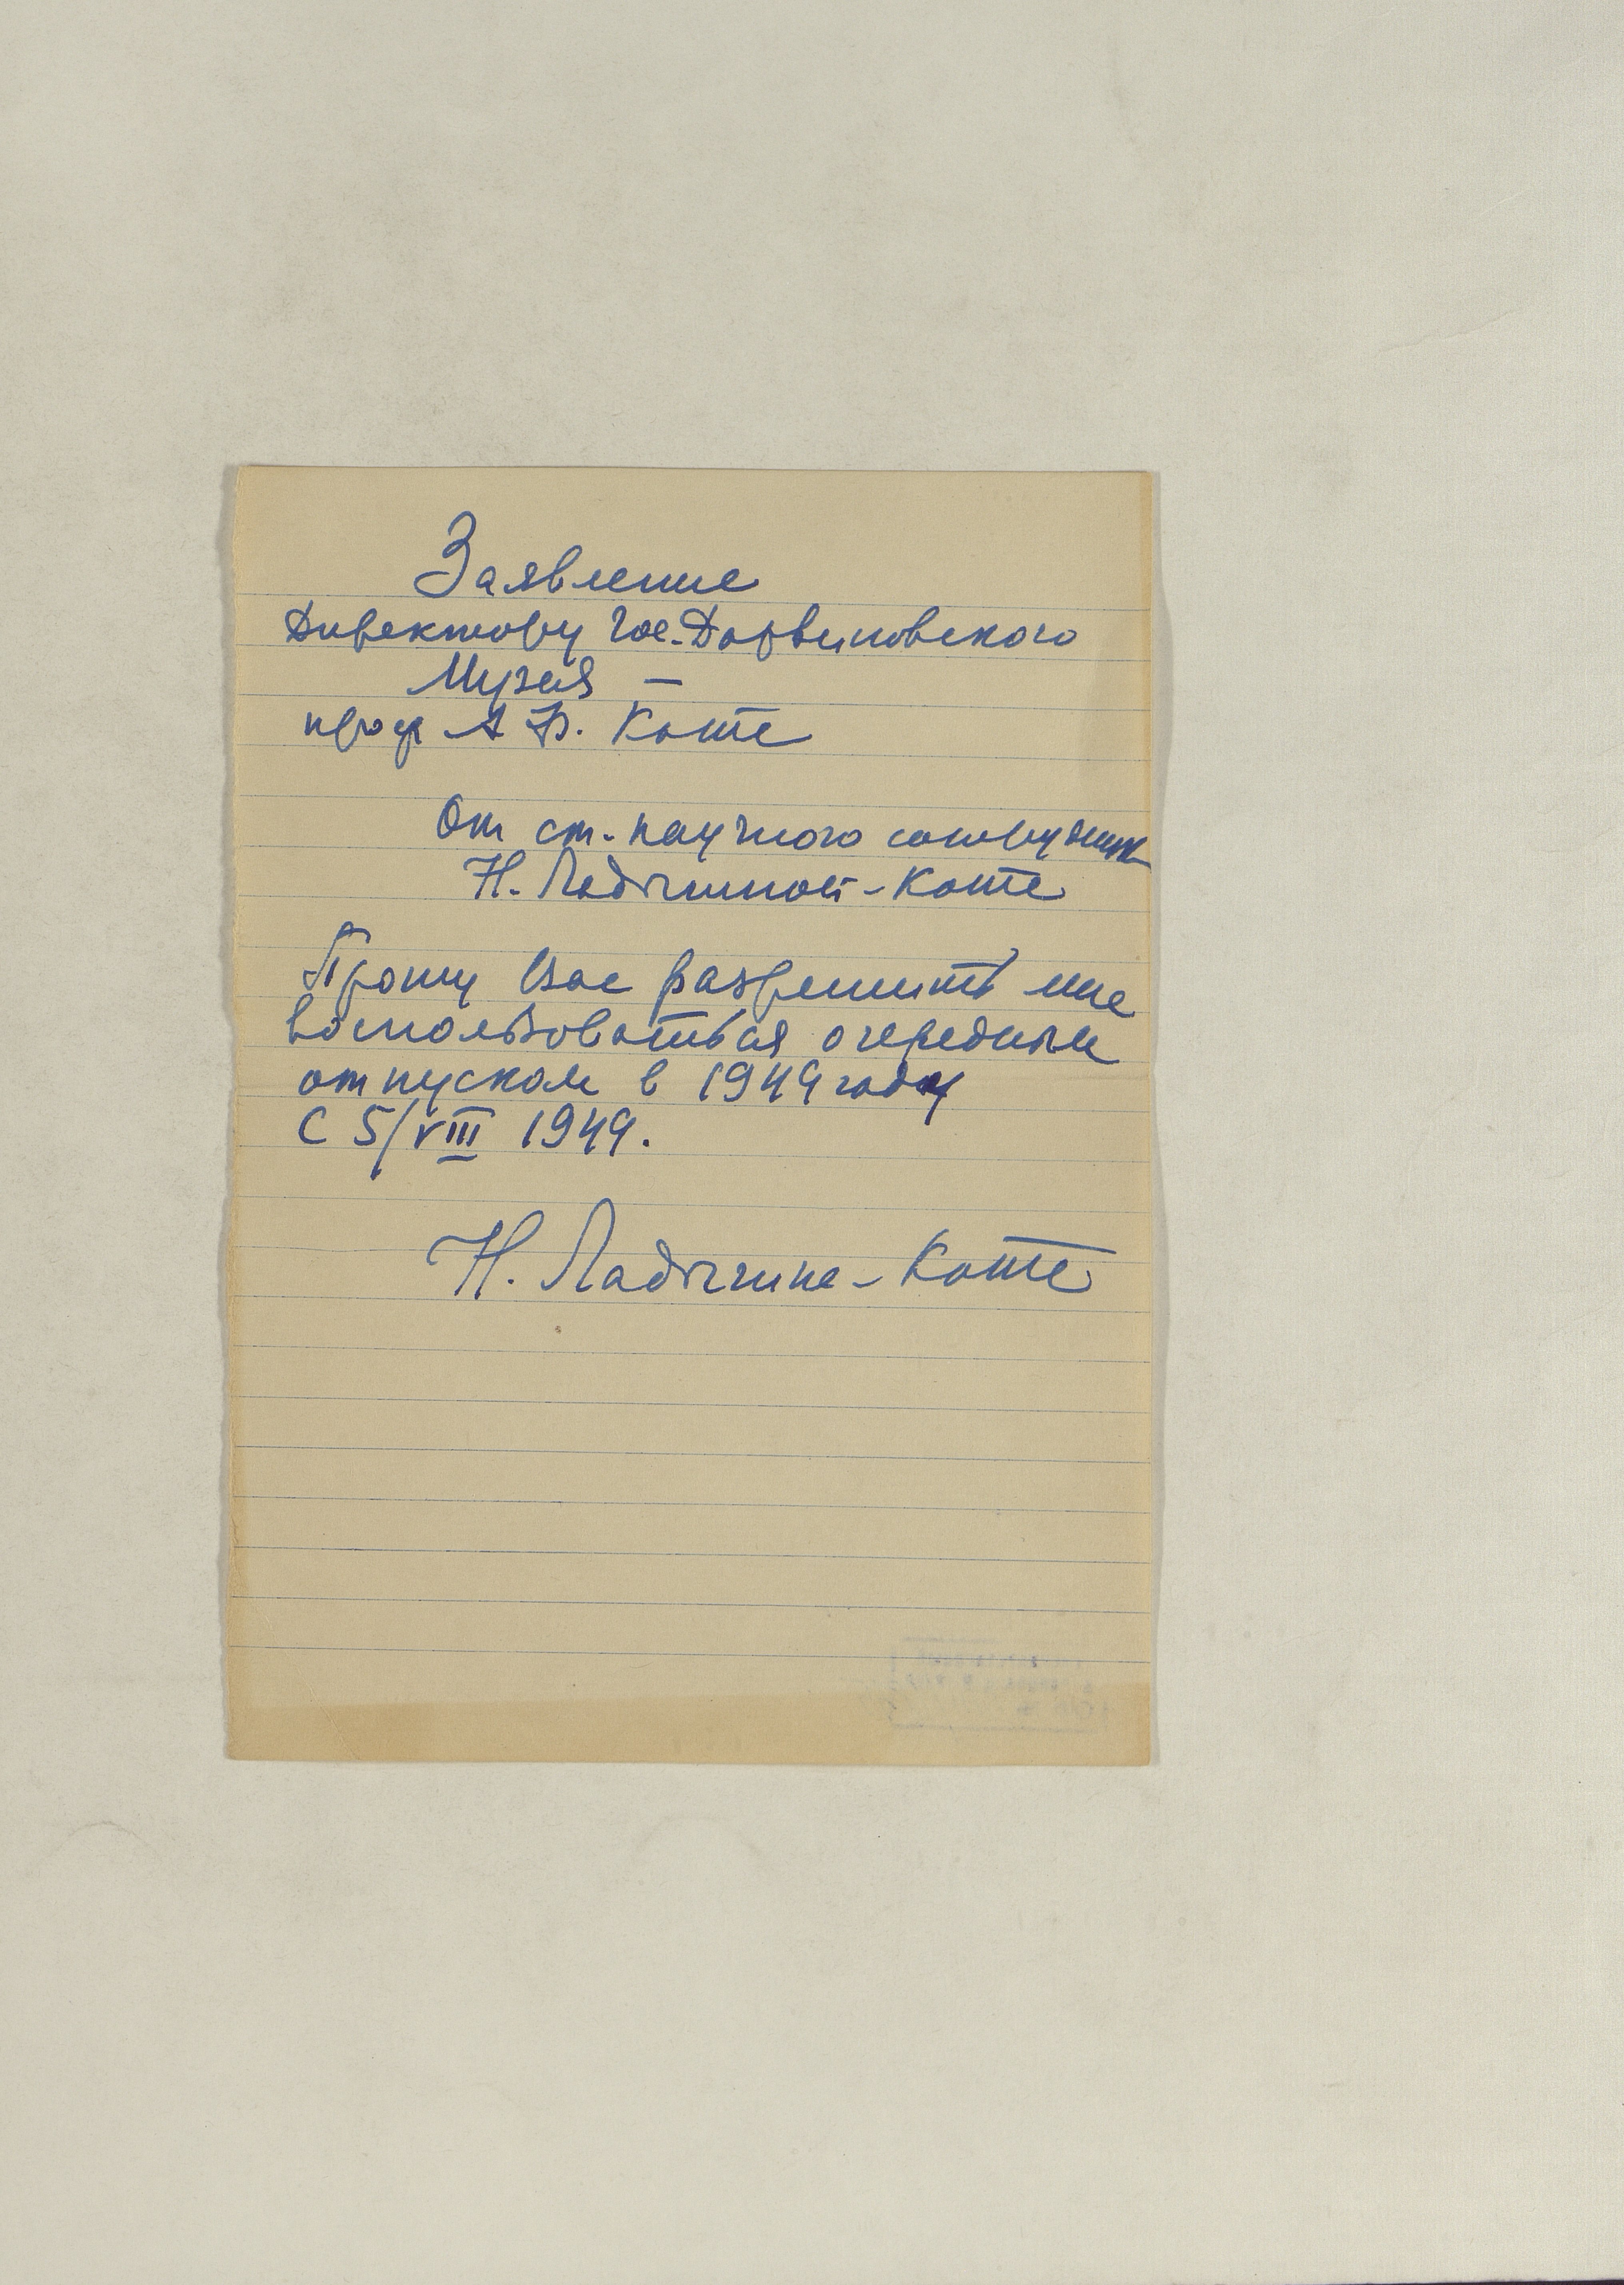 Заявление
Директору Гос. Дарвиновского
Музея —
проф А Ф. Котс
От ст. научного сотрудника
Н. Ладыгиной-Котс
Прошу Вас разрешить мне
воспользоваться очередным
отпуском в 1949 году
С 5/VIII 1949.
Н. Ладыгина-Котс